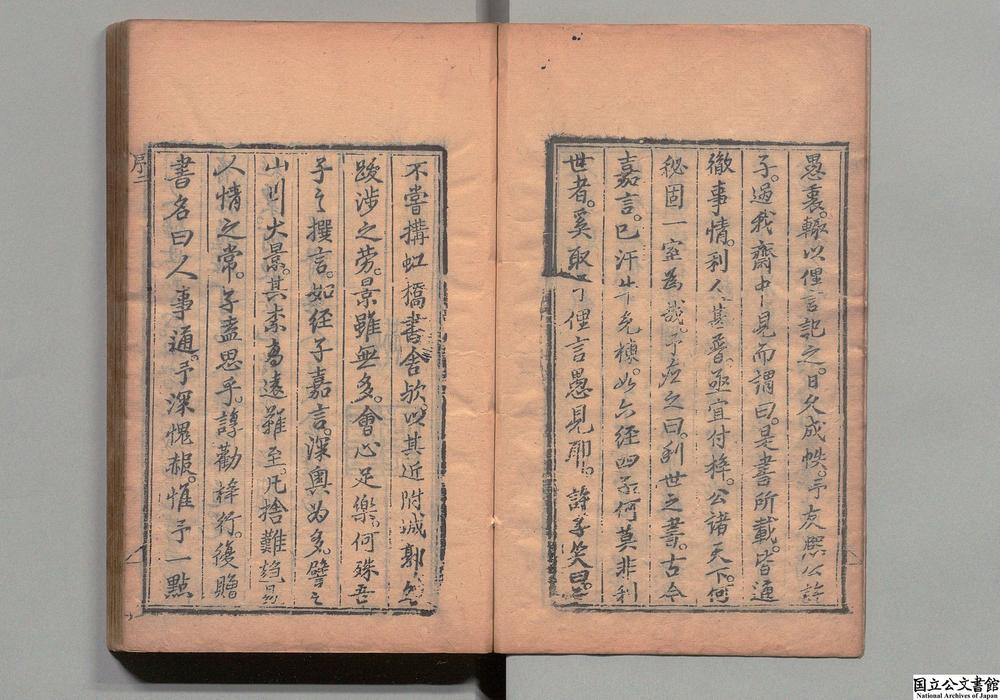 愚衷。輙以俚言記之。日久成帙。予友熙公許
子。過我齋中見而謂曰。是書所載。皆通
徹事情。利人甚普。亟宜付梓。公諸天下。何
秘固一室為哉。予應之曰。利世之書。古今
嘉言。已汗牛充棟。如六經四子。何莫非利
世者。奚取了俚言愚見耶。許子笑曰。
不嘗搆虹橋書舍欤。以其近附城郭。無
跋涉之勞。景雖無多。會心足樂。何殊吾
子之撰言。如經子嘉言。深奧為多。譬之
山川大景。其柰高遠難至。凡捨難趋易
人情之常。子盍思乎。諄勸梓行。復贈
書名曰人事通。予深愧赧。惟予一點
序二
国立公文書館
National Archives of Japan